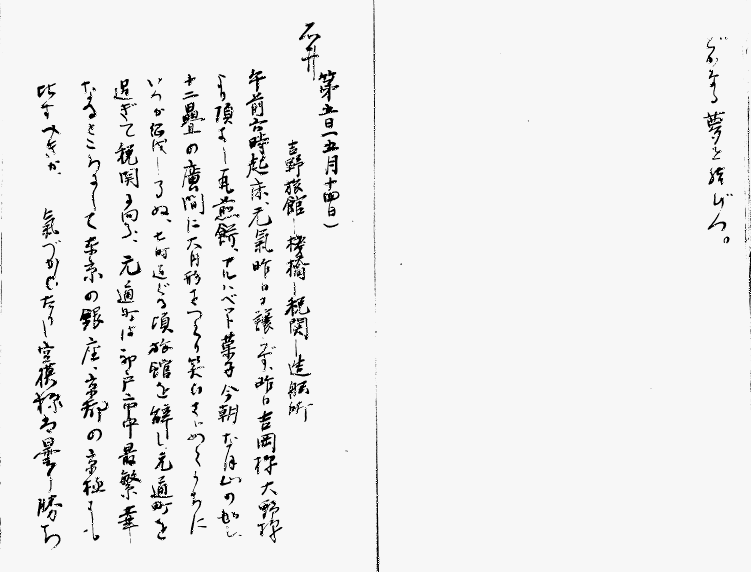 夢を結びつ。
石井
第五日(五月十四日)
吉野旅館―棧橋―税関―造船所
午前六時起床、元氣昨日に讓らず、昨日吉岡様大野様
より頂きし瓦煎餅、アルハベット菓子今朝な月山の如し
十二疊の廣間に大円形をつくり笑ひさゞめくうちに
いつか伝しぬ、七時過ぐる頃旅館を辞し元通町を
過ぎて税関に向ふ、元通町は神戸市中最繁華
なるところにして東京の銀座、京都の京極にも
比すべきか、氣づかひたりし空模様も曇り勝ち